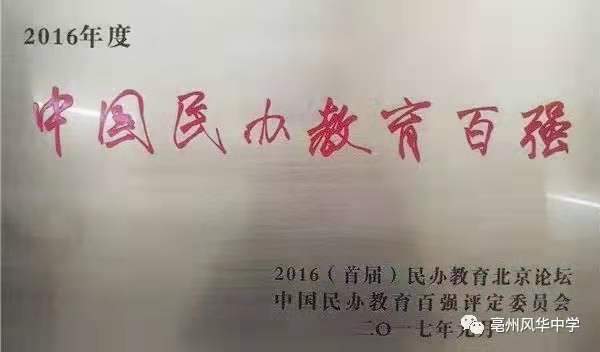 2016年度
中国民办教育百强
2016（首届）民办教育北京论坛
中国民办教育百强评定委员会
二〇一七年元月
亳州风华中学